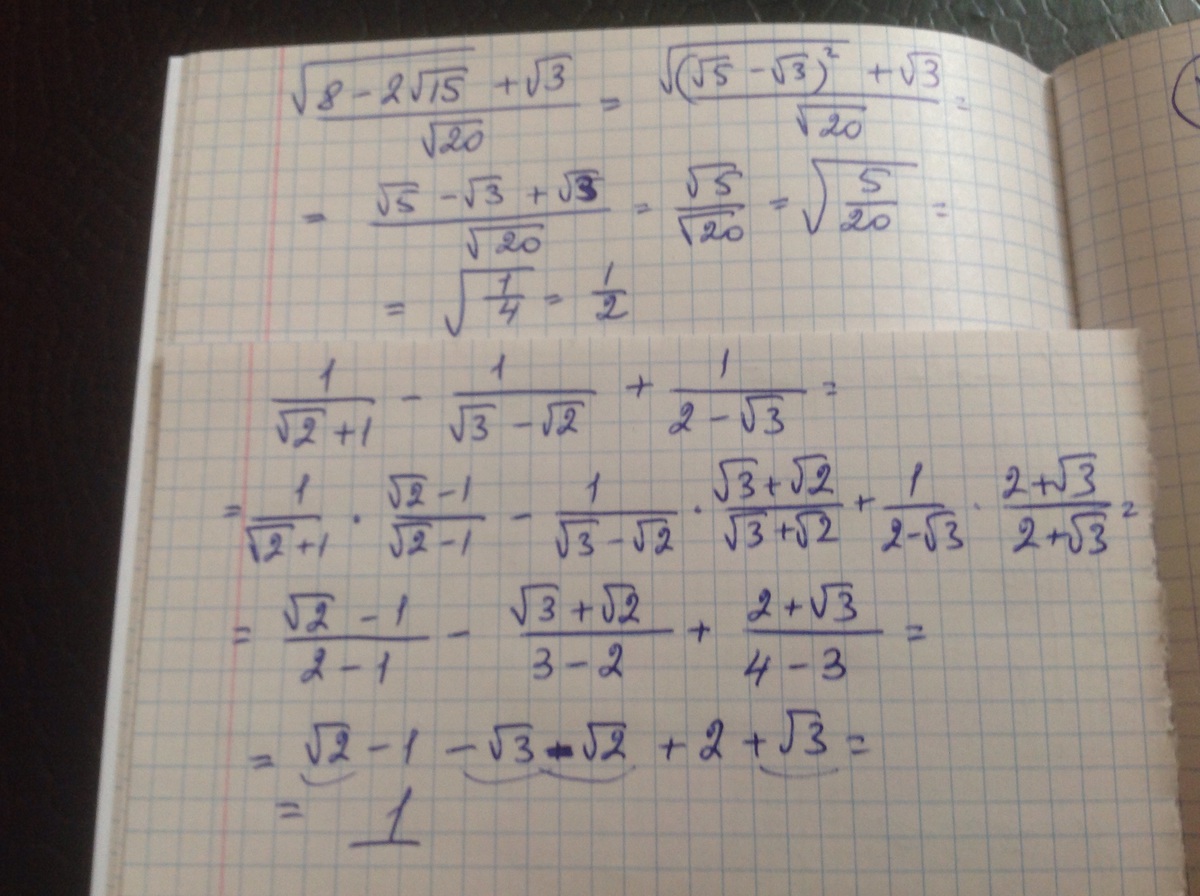 (√(8 - 2√15) + √3)/√20 = (√((√5 - √3)²) + √3)/√20 =
= (√5 - √3 + √3)/√20 = √5/√20 = √(5/20) =
= √(1/4) = 1/2
1/(√2 + 1) - 1/(√3 - √2) + 1/(2 - √3) =
= 1/(√2 + 1) · (√2 - 1)/(√2 - 1) - 1/(√3 - √2) · (√3 + √2)/(√3 + √2) + 1/(2 - √3) · (2 + √3)/(2 + √3) =
= (√2 - 1)/(2 - 1) - (√3 + √2)/(3 - 2) + (2 + √3)/(4 - 3) =
= √2 - 1 - √3 - √2 + 2 + √3 =
= 1